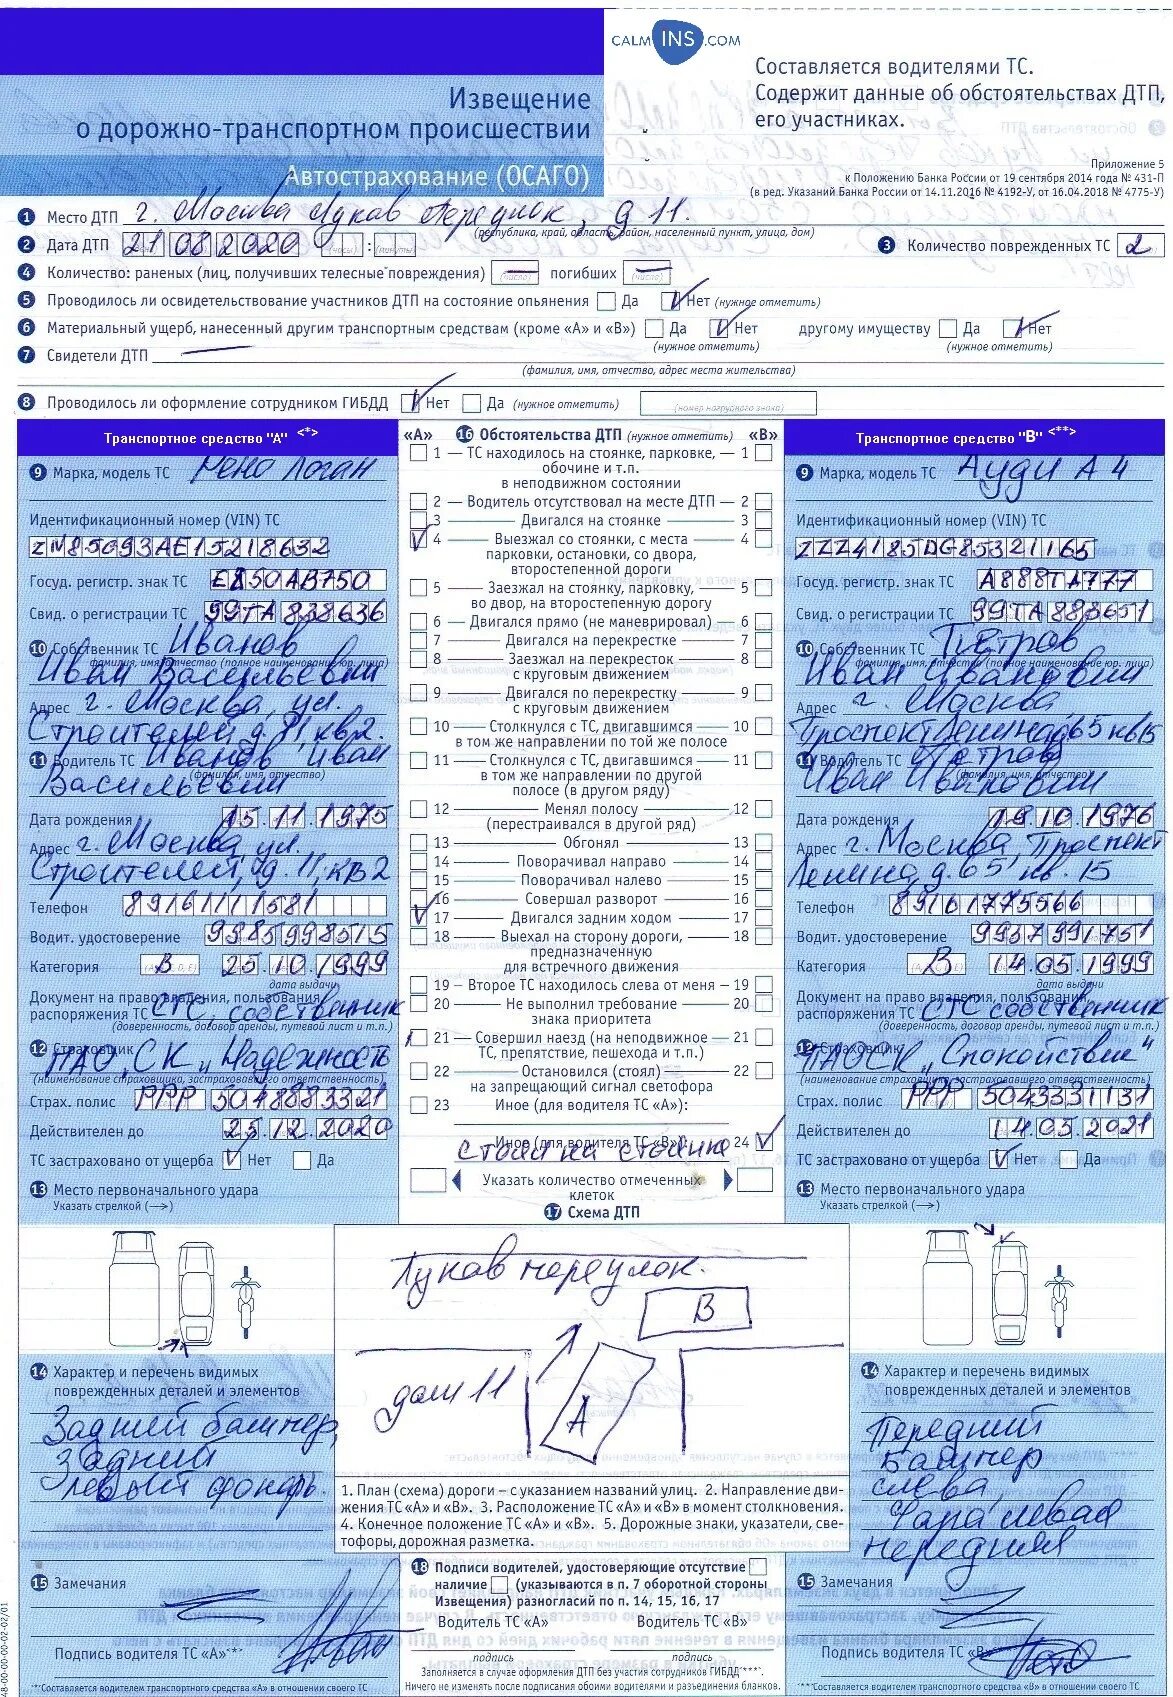 CALM INS .COM
Составляется водителями ТС.
Содержит данные об обстоятельствах ДТП,
его участниках.
Извещение
о дорожно-транспортном происшествии
Автострахование (ОСАГО)
Приложение 5
к Положению Банка России от 19 сентября 2014 года № 431-П
(в ред. Указаний Банка России от 14.11.2016 № 4192-У, от 16.04.2018 № 4775-У)
1 Место ДТП г. Москва Луков переулок, д 11.
(республика, край, область, район, населенный пункт, улица, дом)
2 Дата ДТП 21 08 2020 (часы) : (минуты) 3 Количество поврежденных ТС 2
(число)
4 Количество: раненых (лиц, получивших телесные повреждения) — погибших —
(число) (число)
5 Проводилось ли освидетельствование участников ДТП на состояние опьянения Да Нет (нужное отметить)
6 Материальный ущерб, нанесенный другим транспортным средствам (кроме «А» и «В») Да Нет другому имуществу Да Нет
(нужное отметить) (нужное отметить)
7 Свидетели ДТП —
(фамилия, имя, отчество, адрес места жительства)
8 Проводилось ли оформление сотрудником ГИБДД Нет Да (нужное отметить) (номер нагрудного знака)
Транспортное средство "А" <*>
9 Марка, модель ТС Рено Логан
Идентификационный номер (VIN) ТС
Госуд. регистр. знак ТС Е850АВ750
Свид. о регистрации ТС 99ТА 838636
10 Собственник ТС Иванов
(фамилия, имя, отчество (полное наименование юр. лица)
Иван Васильевич
Адрес г. Москва, ул.
Строителей д. 11, кв 2.
11 Водитель ТС Иванов Иван
(фамилия, имя, отчество)
Васильевич
Дата рождения 15.11.1975
Адрес г. Москва, ул.
Строителей, д. 11, кв 2
Телефон 89161111581
Водит. удостоверение 9985998515
Категория В (А, В, С, D, E) 25.10.1999
дата выдачи
Документ на право владения, пользования,
распоряжения ТС СТС, собственник
(доверенность, договор аренды, путевой лист и т.п.)
12 Страховщик ПАО „СК „Надежность
(наименование страховщика, застраховавшего ответственность)
Страх. полис РРР 5048883321
Действителен до 25.12.2020
ТС застраховано от ущерба Нет Да
13 Место первоначального удара
Указать стрелкой (→)
14 Характер и перечень видимых
поврежденных деталей и элементов
Задний бампер,
Задний
левый фонарь.
15 Замечания
Подпись водителя ТС «А»<*>
<*>Составляется водителем транспортного средства «А» в отношении своего ТС
48-00-00-00-02-02/01
«А» 16 Обстоятельства ДТП (нужное отметить) «В»
1 — ТС находилось на стоянке, парковке, — 1
обочине и т.п.
в неподвижном состоянии
2 — Водитель отсутствовал на месте ДТП — 2
3 — Двигался на стоянке — 3
4 — Выезжал со стоянки, с места — 4
парковки, остановки, со двора,
второстепенной дороги
5 — Заезжал на стоянку, парковку, — 5
во двор, на второстепенную дорогу
6 — Двигался прямо (не маневрировал) — 6
7 — Двигался на перекрестке — 7
8 — Заезжал на перекресток — 8
с круговым движением
9 — Двигался по перекрестку — 9
с круговым движением
10 — Столкнулся с ТС, двигавшимся — 10
в том же направлении по той же полосе
11 — Столкнулся с ТС, двигавшимся — 11
в том же направлении по другой
полосе (в другом ряду)
12 — Менял полосу — 12
(перестраивался в другой ряд)
13 — Обгонял — 13
14 — Поворачивал направо — 14
15 — Поворачивал налево — 15
16 — Совершал разворот — 16
17 — Двигался задним ходом — 17
18 — Выехал на сторону дороги, — 18
предназначенную
для встречного движения
19 — Второе ТС находилось слева от меня — 19
20 — Не выполнил требование — 20
знака приоритета
21 — Совершил наезд (на неподвижное — 21
ТС, препятствие, пешехода и т.п.)
22 — Остановился (стоял) — 22
на запрещающий сигнал светофора
23 Иное (для водителя ТС «А»):
Иное (для водителя ТС «В»): 24
стоял на стоянке
Указать количество отмеченных
клеток
17 Схема ДТП
Луков переулок.
В
дом 11
А
1. План (схема) дороги – с указанием названий улиц. 2. Направление дви-
жения ТС «А» и «В». 3. Расположение ТС «А» и «В» в момент столкновения.
4. Конечное положение ТС «А» и «В». 5. Дорожные знаки, указатели, све-
тофоры, дорожная разметка.
18 Подписи водителей, удостоверяющие отсутствие
наличие (указываются в п. 7 оборотной стороны
Извещения) разногласий по п. 14, 15, 16, 17
Водитель ТС «А» Водитель ТС «В»
подпись подпись
Заполняется в случае оформления ДТП без участия сотрудников ГИБДД<***>.
Ничего не изменять после подписания обоими водителями и разъединения бланков.
Транспортное средство "В" <**>
9 Марка, модель ТС Ауди А4
Идентификационный номер (VIN) ТС
ZZZ4185DG85321165
Госуд. регистр. знак ТС А888ТА777
Свид. о регистрации ТС 99ТА 888651
10 Собственник ТС Петров
(фамилия, имя, отчество (полное наименование юр. лица)
Иван Иванович
Адрес г. Москва
Проспект Ленина, д 65 кв 15
11 Водитель ТС Петров
(фамилия, имя, отчество)
Иван Иванович
Дата рождения 19.10.1976
Адрес г. Москва, Проспект
Ленина, д. 65 кв. 15
Телефон 89161775566
Водит. удостоверение 9937991751
Категория В (А, В, С, D, E) 14.05.1999
дата выдачи
Документ на право владения, пользования,
распоряжения ТС СТС собственник
(доверенность, договор аренды, путевой лист и т.п.)
12 Страховщик ПАО СК „Спокойствие"
(наименование страховщика, застраховавшего ответственность)
Страх. полис РРР 5043331131
Действителен до 14.05.2021
ТС застраховано от ущерба Нет Да
13 Место первоначального удара
Указать стрелкой (→)
14 Характер и перечень видимых
поврежденных деталей и элементов
Передний
бампер
слева,
Фара левая
передняя
15 Замечания
Подпись водителя ТС «В»
<**>Составляется водителем транспортного средства «В» в отношении своего ТС